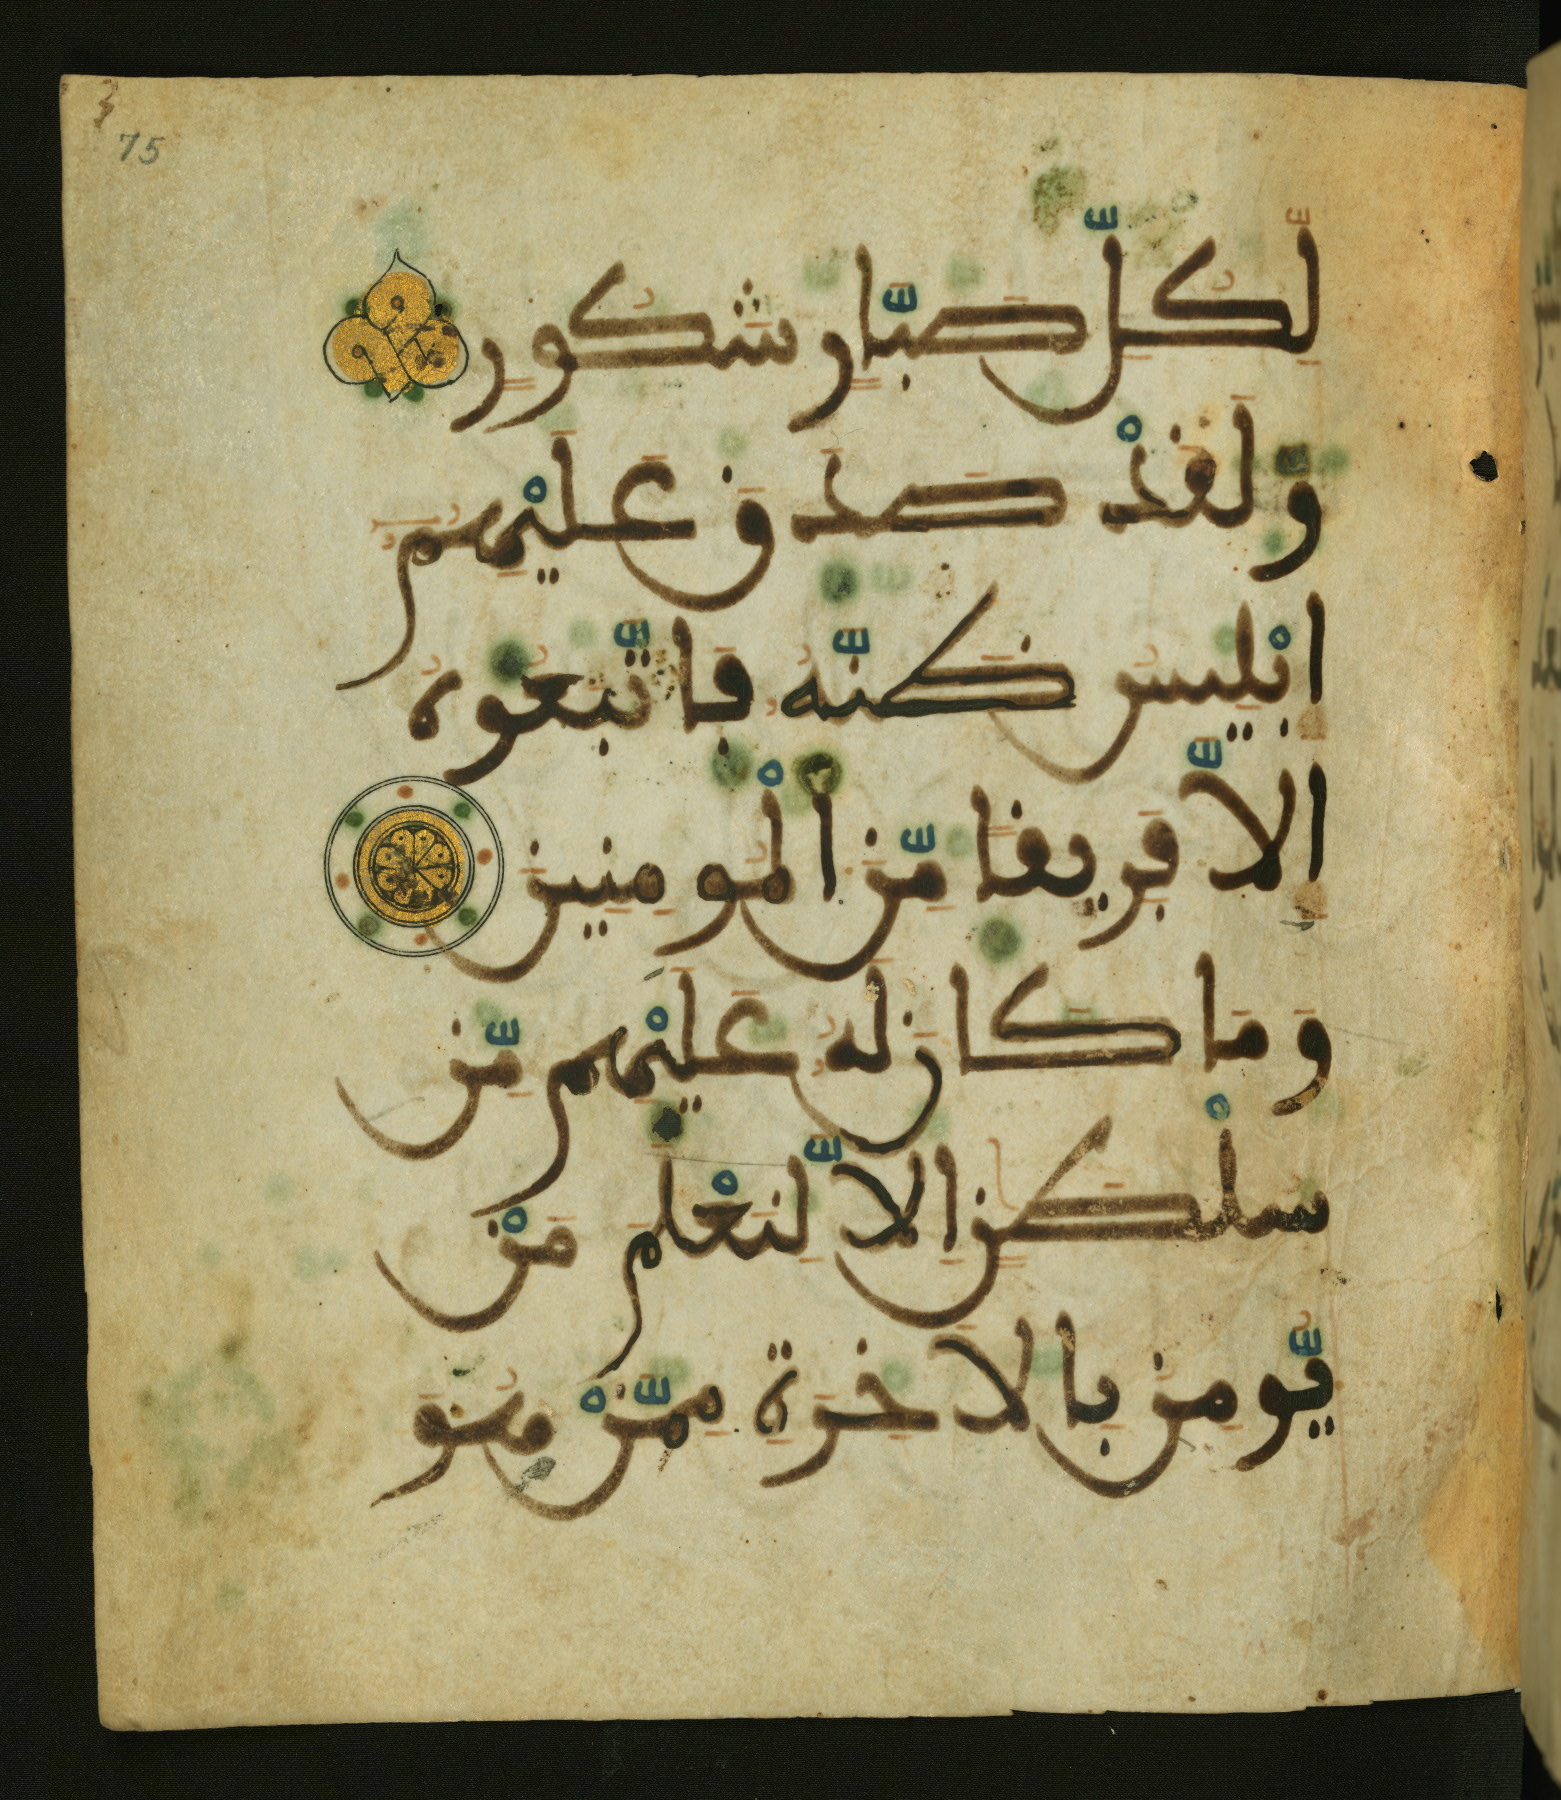 75
لِّكُلِّ صَبّٰارٖ شَكُورٖ
وَلَقَدْ صَدَقَ عَلَيْهِمُۥٓ
إِبْلِيسُ ظَنَّهُۥ فَاتَّبَعُوهُ
إِلَّا فَرِيقاً مِّنَ اَلْمُومِنِينَ
وَمَا كَانَ لَهُۥ عَلَيْهِم مِّن
سُلْطَٰنٍ اِلَّا لِنَعْلَمَ مَنْ
يُّومِنُ بِالَاخِرَةِ مِمَّنْ هُوَ